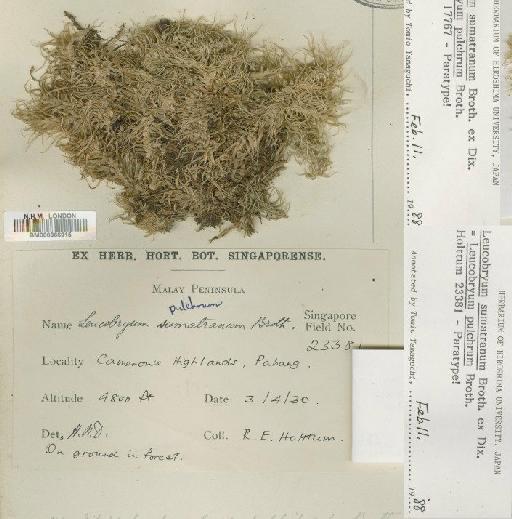 N.H.M. LONDON
EX HERB. HORT. BOT. SINGAPORENSE.
MALAY PENINSULA
pulchrum
Name Leucobryum sumatranum Broth.
Singapore
Field No.
2338
Locality Cameron's Highlands, Pahang.
Altitude 4800 ft
Date 3/4/30.
Det. H.N.D.
Coll. R. E. Holttum.
On ground in forest.
HERBARIUM OF HIROSHIMA UNIVERSITY, JAPAN
sumatranum Broth. ex Dix.
pulchrum Broth.
17767 - Paratype!
by Tomio Yamaguchi, Feb. 11. 1988
HERBARIUM OF HIROSHIMA UNIVERSITY, JAPAN
Leucobryum sumatranum Broth. ex Dix.
= Leucobryum pulchrum Broth.
Holttum 23381 - Paratype!
Annotated by Tomio Yamaguchi, Feb. 11. 1988